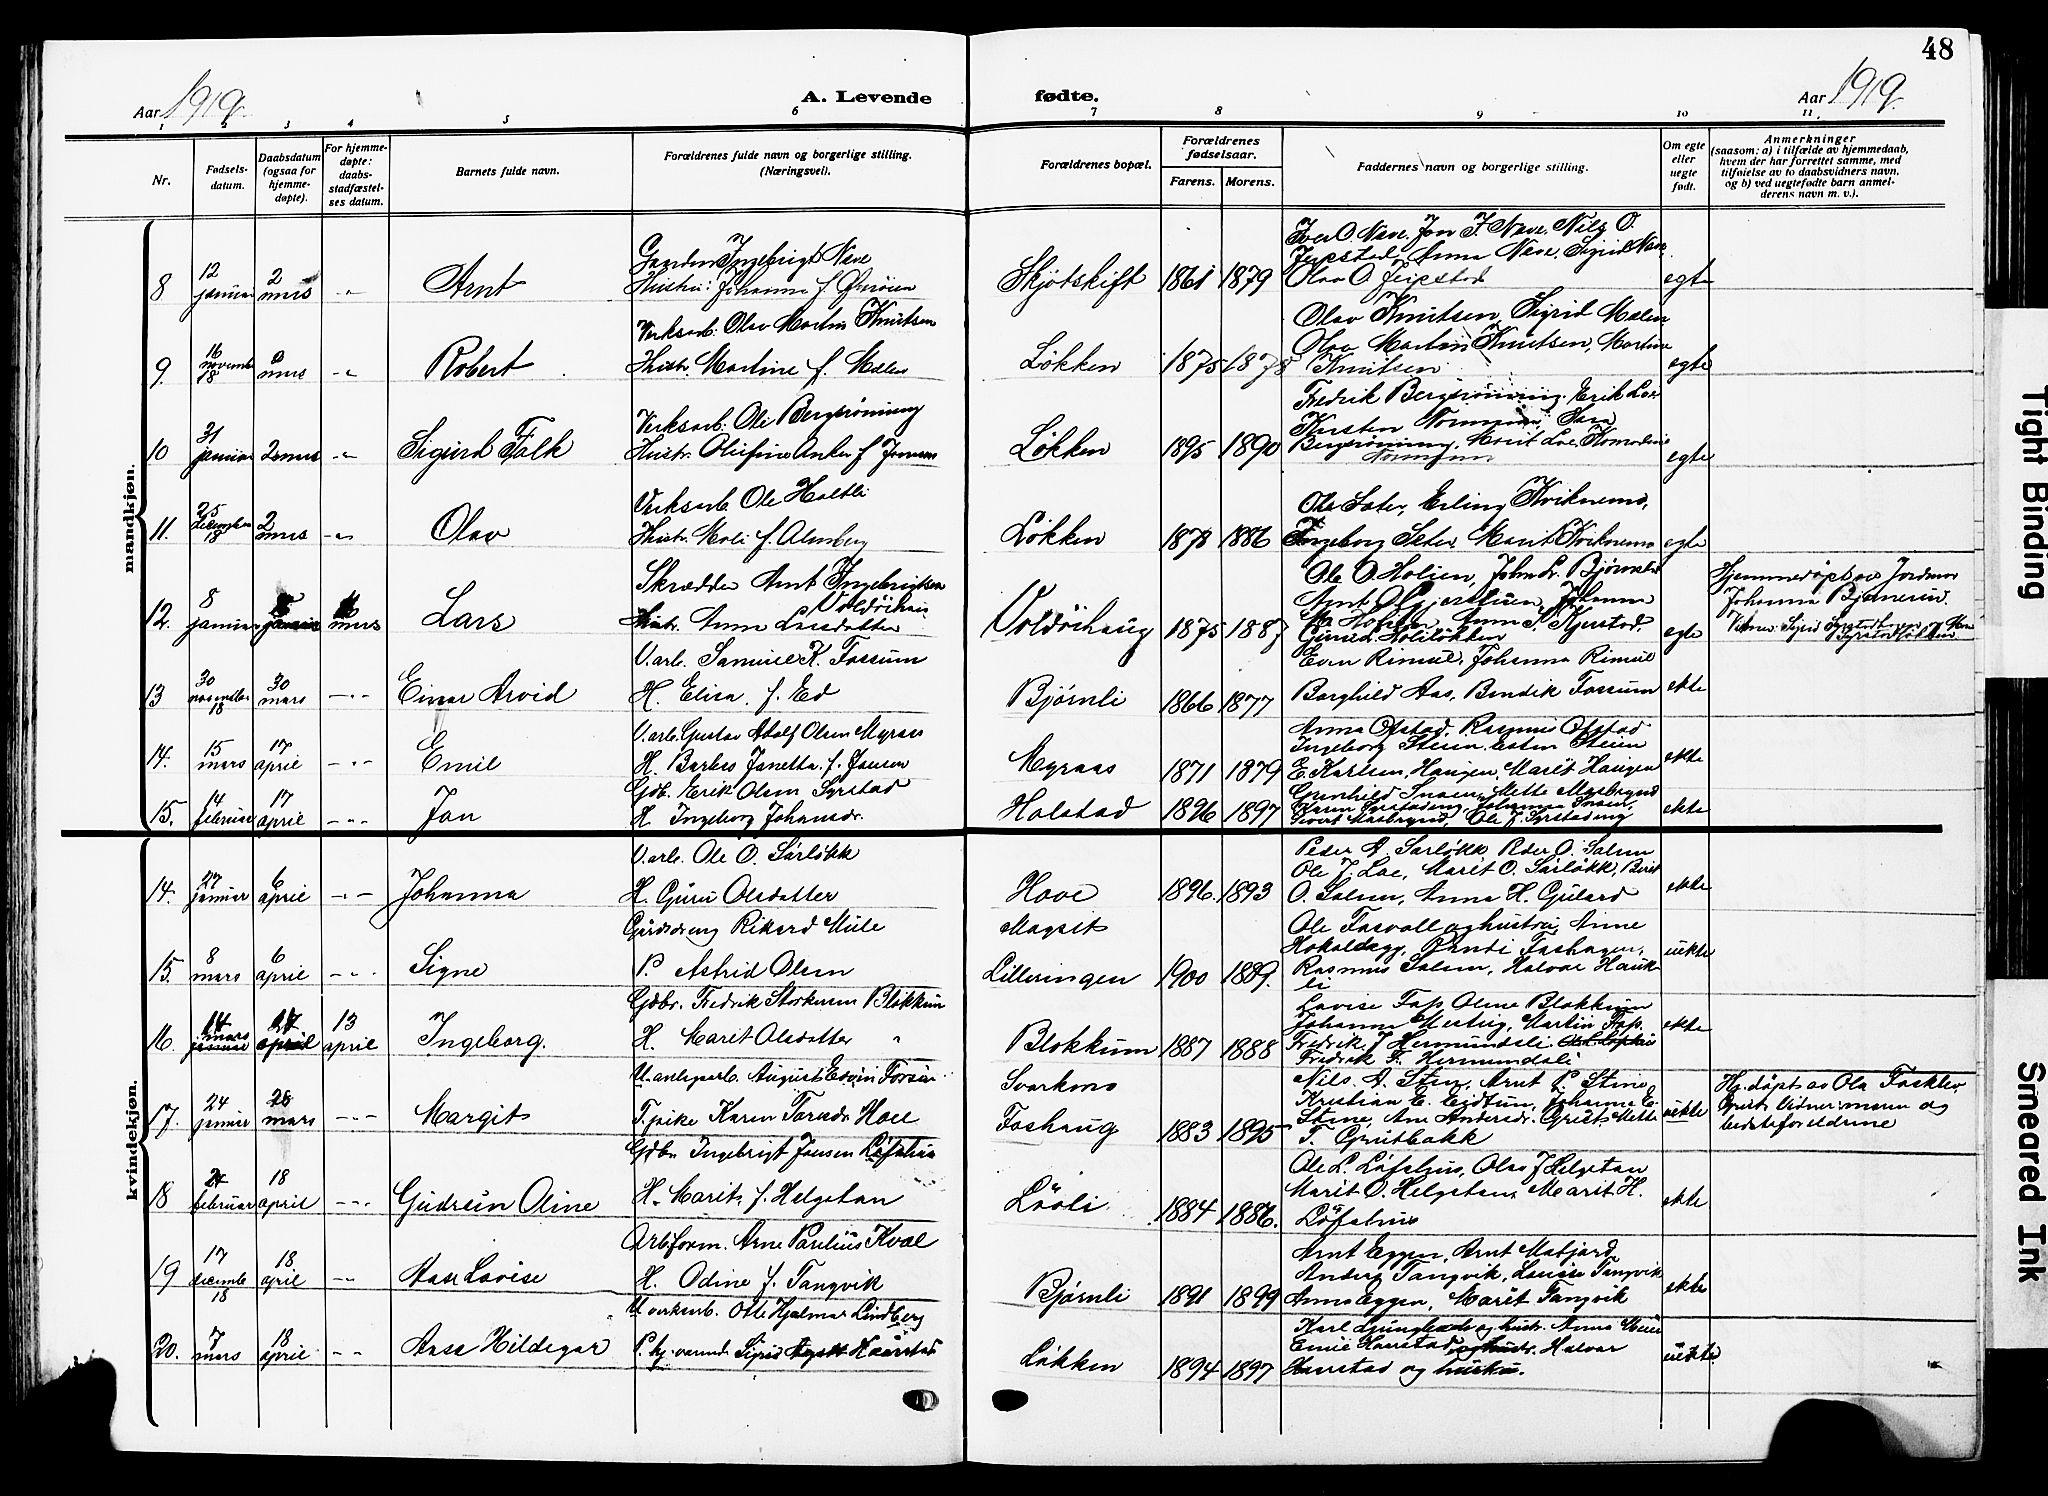 48
Aar 1919.
A. Levende
fødte.
Aar 1919.
1 2 3 4 5 6 7 8 9 10 11
Nr.
Fødsels-
datum.
Daabsdatum
(ogsaa for
hjemme-
døpte).
For hjemme-
døpte:
daabs-
stadfæstel-
ses datum.
Barnets fulde navn.
Forældrenes fulde navn og borgerlige stilling.
(Næringsvei).
Forældrenes bopæl.
Forældrenes
fødselsaar.
Farens. Morens.
Faddernes navn og borgerlige stilling.
Om egte
eller
uegte
født.
Anmerkninger
(saasom: a) i tilfælde av hjemmedaab,
hvem der har forrettet samme, med
tilføielse av to daabsvidners navn,
og b) ved uegtefødte barn anmel-
derens navn m. v.).
mandkjøn.
8
12
januar
2
mars
Arnt
Gaardm Ingebrigt Neve
Hustru: Johanna f.
Skjøtskift
1861 1879
Iver O. Neve, Jon I. Neve, Nils O.
Jerpstad, Anna Neve, Sigrid Neve,
Olav O. Jerpstad
egte
9.
16
novemb
18
2
mars
Robert
Verksarb. Olav Martin Knutsen
Hustr. Martine f. Melen
Løkken
1875 1878
Olav Knutsen, Sigrid Melen
Olav Martin Knutsen, Martine
Knutsen
egte
10
31
januar
2 mars
Sigurd Falk
Verksarb. Ole Bergsrønning
Hustr. Olufine Anker f. Jensen
Løkken
1895 1890
Fredrik Bergsrønning, Erik Loe
Kirsten
Bergsrønning, Marit Loe,
egte
11.
25
december
18
2
mars
Olav
Verksarb. Ole Holtli
Hustr. Mali f. Almberg
Løkken
1878 1886
Ole Sæter, Erling Kviknemo,
Ingeborg Seter, Marit Kviknemo
egte
12.
8
januar
mars
Lars
Skrædder Arnt Ingebrigtsen
Voldöihaug
Hustr. Anna Larsdatter
Voldöihaug
1875 1887
Ole O. Holien, John L. Bjørnli
Arnt O. Gjerstuen, Johanna
egte
Hjemmedøpt av Jordmor
Johanna
Vidner: Sigrid
13
30
november
18
30
mars
Einar Arvid
V.arb. Samuel K. Fossum
H. Elisa f. Ed
Bjørnli
1866 1877
Even Rimul, Johanna Rimul
Borghild Aas, Bendik Fossum
ekte
14.
15
mars
17
april
Emil
V.arb. Gustav Adolf Olsen Myraas
H. Barbro Janetta f. Jonsen
Myraas
1871 1879
Anna Ofstad, Rasmus Ofstad
Ingeborg Steien, Esten Steien
E. Karlsen, Haugen, Marit Haugen
ekte
15.
14
februar
17
april
Jon
Gdb. Erik Olsen Syrstad
H. Ingeborg Johansdr.
Holstad
1896 1897
Gunhild Snoen, Mette Mosbrynd
Karen Syrstadeng, Johanna Snoen,
Sivert Mosbrynd, Ole J. Syrstadeng
ekte
kvindekjøn.
14.
27
januar
6
april
Johanna
V.arb. Ole O. Sørløkk
H. Guru Olsdatter
Hove
1896. 1893
Peder A. Sørløkk, Peder O. Solem
Ole J. Loe, Marit O. Sørløkk, Berit
O. Solem, Anna H. Gulard
ekte
15.
8
mars
6
april
Signe
Gårdsdreng Rikard Mule
P. Astrid Olsen
Magsit
Lilleringen
1900 1889.
Ole Fosvoll og hustru, Anne
Rasmus Solem, Halvar Hauk-
li
uekte
16.
14
mars
april
13
april
Ingeborg.
Gdbr. Fredrik Storkersen Blokkum
H. Marit Olsdatter
Blokkum
1887 1888
Lovise Foss, Oline Blokkum
Johanna Mestrig, Martin Foss,
Fredrik J. Hermundsli
Fredrik F. Hermundsli
ekte
17.
24
januar
28
mars
Margit
U. anlegsarb. August Edvin Forsén
T. pike Karen Toresdr. Hoel
Svorkmo
Foshaug
1883 1895
Nils A. Stene, Arnt P. Stene
Kristian E. Eidtun, Johanne E.
Stene, Ane Andersdr. Grut, Mette
T. Grutbakk
uekte
Hj. døpt av Ola Fosklev.
Grut. Vidner: moren og
bedsteforeldrene
18
24
februar
18
april
Gudrun Oline
Gdbr. Ingebrigt Jonsen Løfshus
H. Marit f. Helgetun
Lóoli
1884 1886.
Ole L. Løfshus, Olav J Helgetun
Marit O. Helgetun, Marit H.
Løfshus
ekte
19
17
decemb
18
18
april
Aase Lovise
Arb.form. Arne Parelius Kval
H. Odine f. Tangvik
Bjørnli
1891 1899
Arnt Eggen, Arnt Mofjord
Anders Tangvik, Lovise Tangvik
Anna Eggen, Marit Tangvik
ekte
20.
7
mars
18
april
Aasa Hildegar
U. verksarb. Otto Hjalmar Lindberg
P. hj. værend. Sigrid Haarstad
Løkken
1894 1897
Karl Ljungblade og hustr. Anna Moen
Emil Haarstad og hustr. Halvor
Haarstad og hustru.
uekte
Tight Binding
Smeared Ink